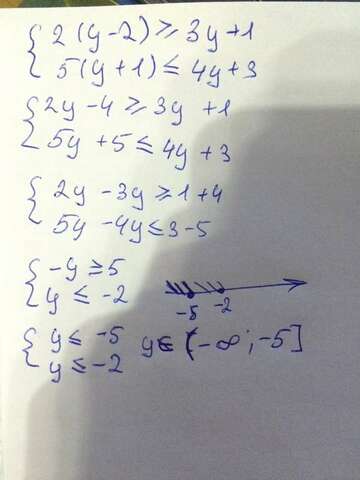 { 2(y-2) ≥ 3y+1
5(y+1) ≤ 4y+3
{ 2y-4 ≥ 3y+1
5y+5 ≤ 4y+3
{ 2y-3y ≥ 1+4
5y-4y ≤ 3-5
{ -y ≥ 5
y ≤ -2
-5 -2
{ y ≤ -5 y∈(-∞;-5]
y ≤ -2